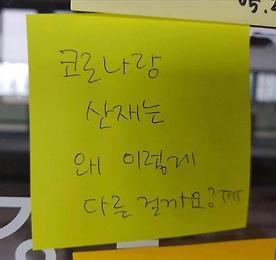 05.2
코로나랑
산재는
왜 이렇게
다른 걸까요? ㅠㅠ